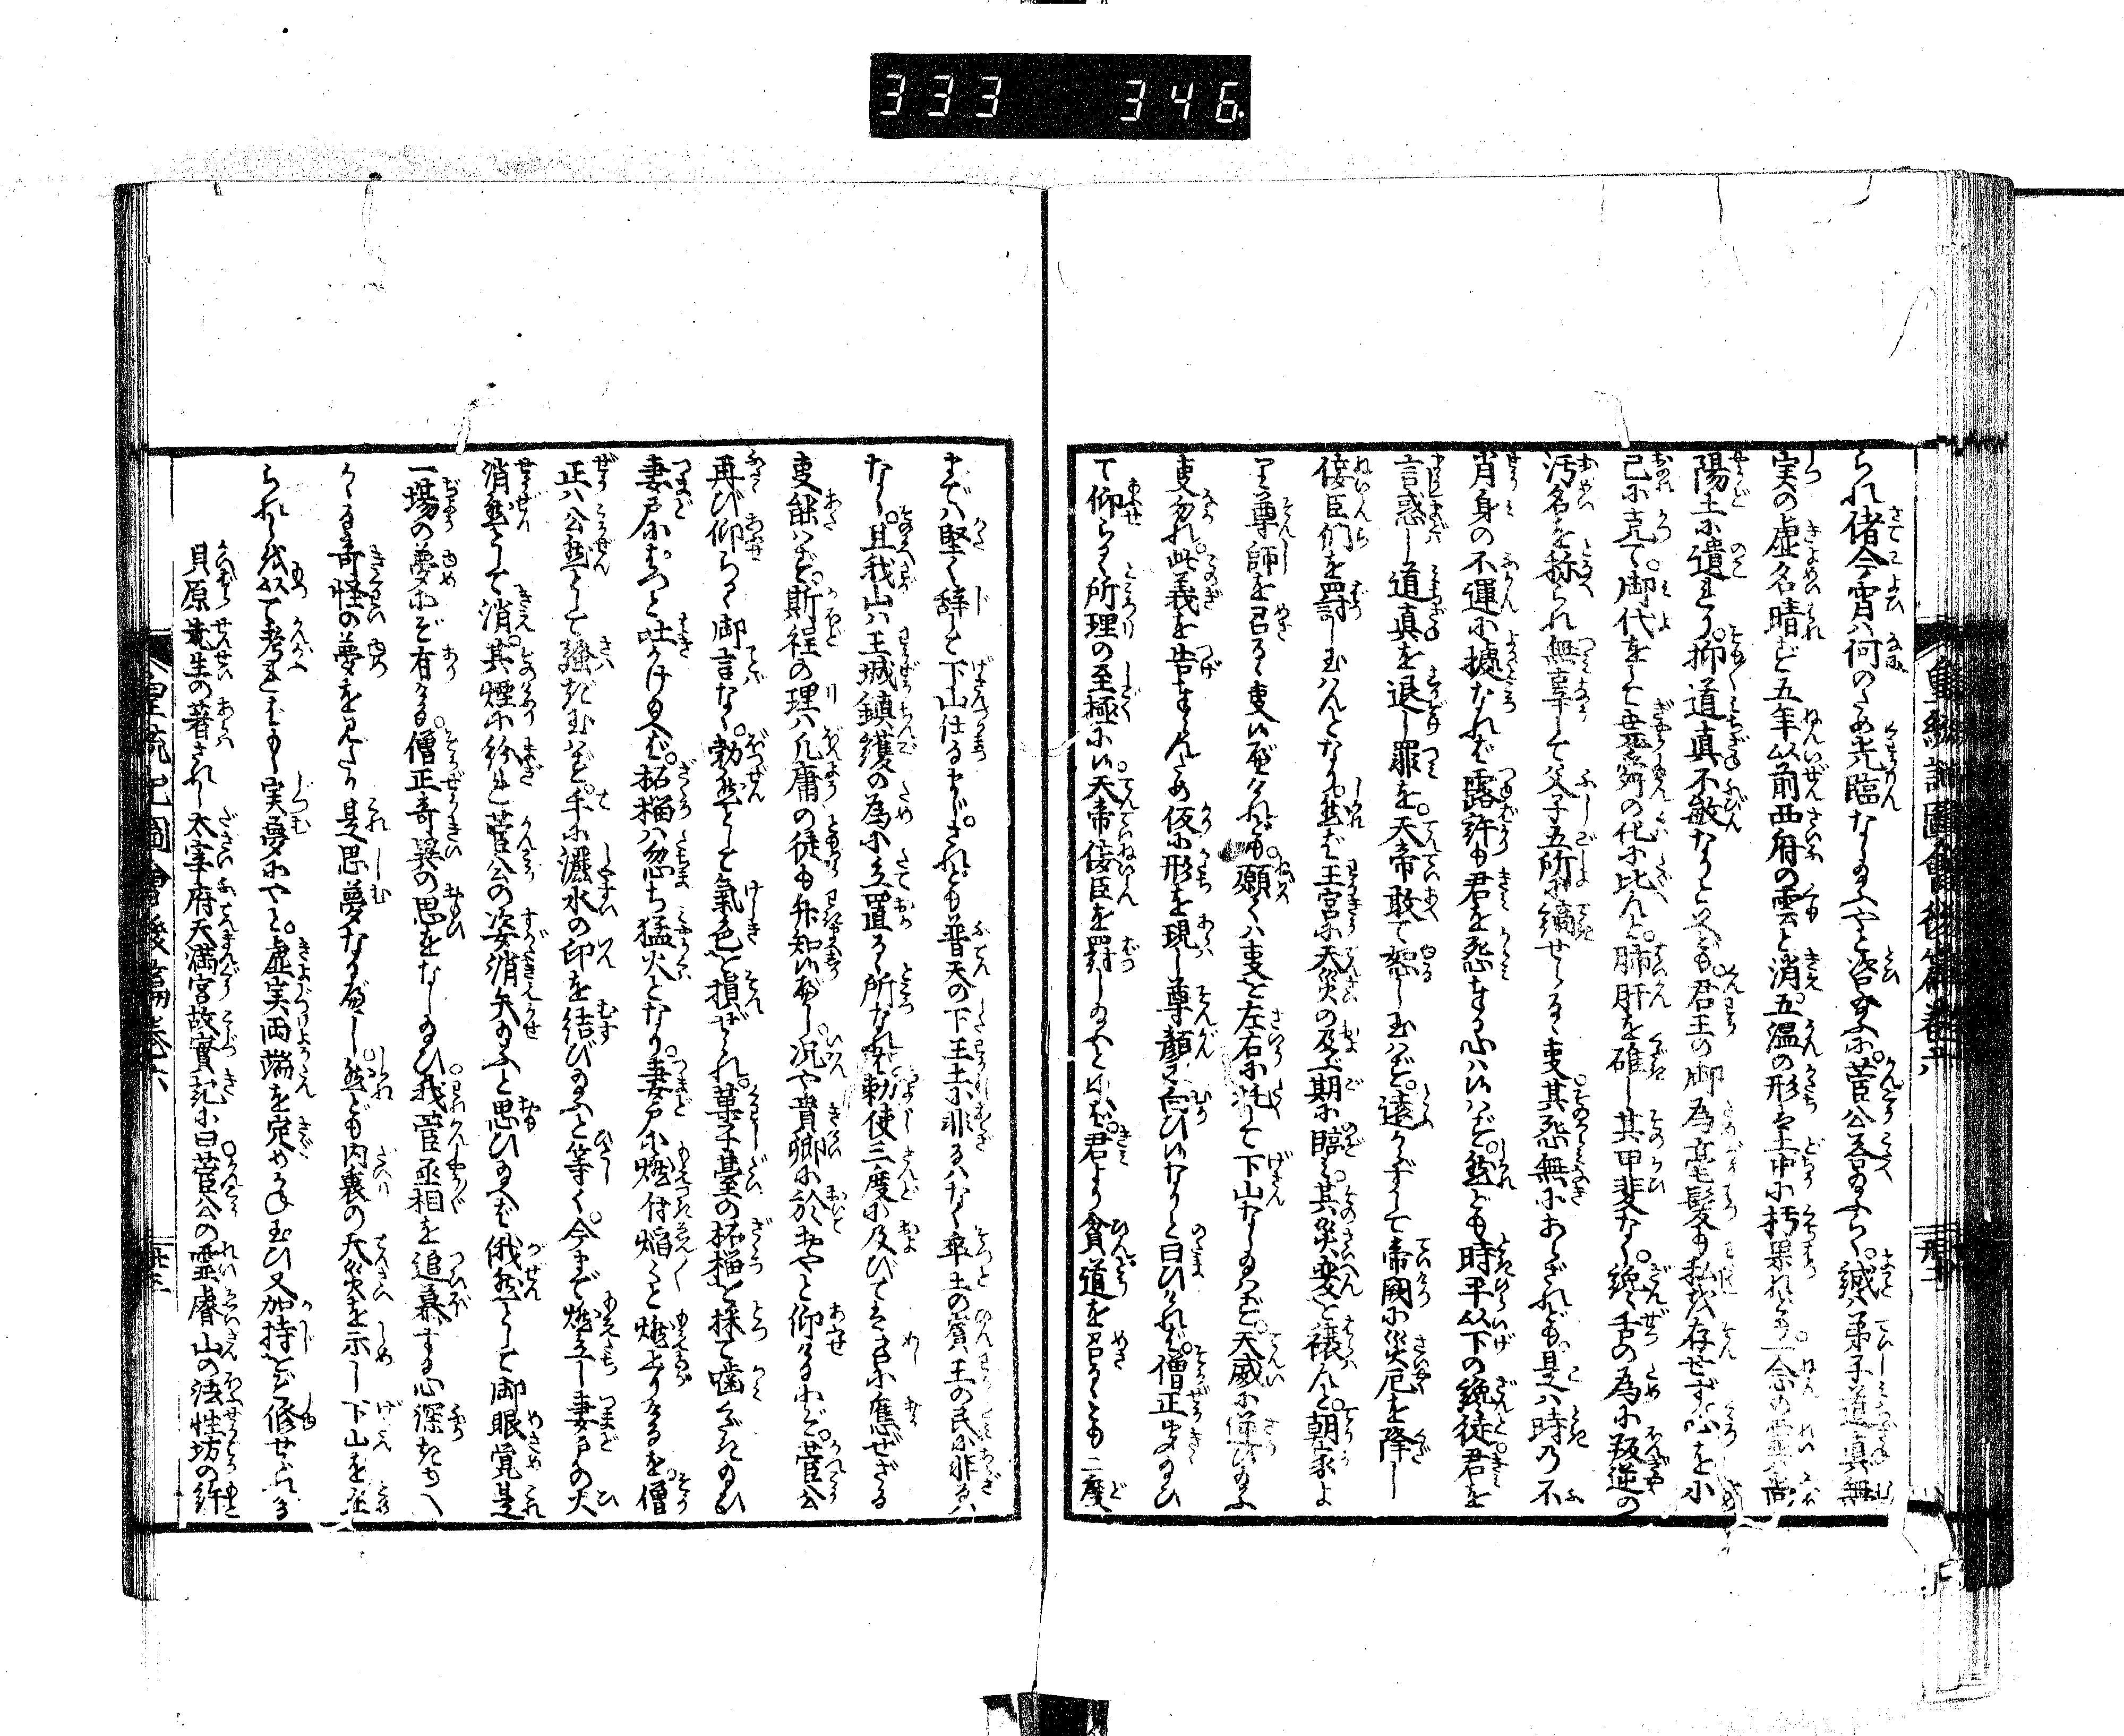 333 346
られ偖今宵ハ何のため光臨なし給ふやと沓給ふに菅公答給ふらく誠ハ弟子道真無
実の虚名晴ど五年以前西府の雲と消五温の形ハ土中に朽果れども一念の霊尚
陽土に遺れり抑道真不敏なりといへども君王の御為毫髪も私を存せず心を小
己に克て御代をして堯舜の代に比んと肺肝を碓し其甲斐なく讒舌の為に叛逆の
汚名を称られ無辜して父子五所に謫せらるゝ事其怨無にあらざれども是ハ時乃不
肖身の不運に拠なれバ露許も君を怨奉る心ハいはず然ども時平以下の讒徒君を
言惑し道真を退し罪を天帝敢て恕し玉ハず遠からずして帝闕に災厄を降し
佞臣們を罰し玉ハんとなり然バ王宮に天災の及ぶ期に臨み其災変を禳んと朝家よ
り尊師を召るゝ事いべけれども願くハ事を左右に托して下山なし給ハず天威に逆ひ給ふ
事勿れ此義を告まゐらせんため仮に形を現し尊顔に向ひいなりと曰ひけれバ僧正聞給ひ
て仰らく所理の至極にい天帝佞臣を罸し給ふと也バ君より貧道を召るゝとも二度
までハ堅く辞して下山仕るまじされども普天の下王土に非るハなく率土の賓王の民に非るハ
なし且我山ハ王城鎮護の為に立置るゝ所なれバ勅使三度に及びてハ召に應ぜざる
事能ハず斯程の理ハ凡庸の徒も弁知いべし況や貴卿に於おやと仰けるにぞ菅公
再び仰らく御言なく勃然として氣色を損ぜられ菓子臺の柘榴を採て噛くだき給ひ
妻戸にはつと吐かけ給へバ柘榴ハ忽ち猛火となり妻戸に燃付焔々と燃上りけるを僧
正ハ公然として騒ぎ玉ハず手に灑水の印を結び給ふと等く今まで燃立し妻戸の火
消然として消其煙に紛れ菅公の姿消失給ふと思ひ給へバ俄然として御眼覚是
一場の夢にぞ有ける僧正奇異の思をなし給ひ我菅丞相を追慕する心深きゆへ
かゝる奇怪の夢を見たり是思夢なるべし然ども内裏の天災を示し下山を止
られしを以て考ればもし実夢にやと虚実両端を定めかね玉ひ又加持を修せられける
貝原先生の著されし太宰府天満宮故實記に曰菅公の霊睿山の法性坊の許